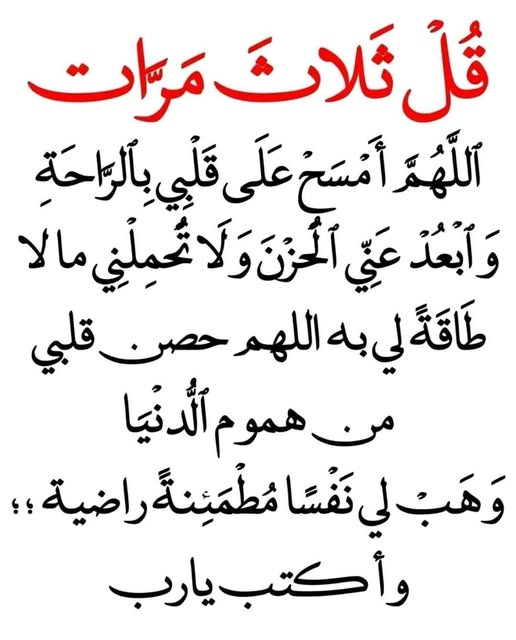 قُلْ ثَلاثَ مَرَّات
ٱللَّهُمَّ أَمْسَحْ عَلَى قَلْبِي بِٱلرَّاحَةِ
وَٱبْعُدْ عَنِّي ٱلْحُزْنَ وَلَا تُحمِلْنِي ما لا
طَاقَةً لي به اللهم حصن قلبي
من هموم ٱلدُّنْيَا
وَهَبْ لي نَفْسًا مُطْمَئِنةً راضية ؛؛
وأكتب يارب